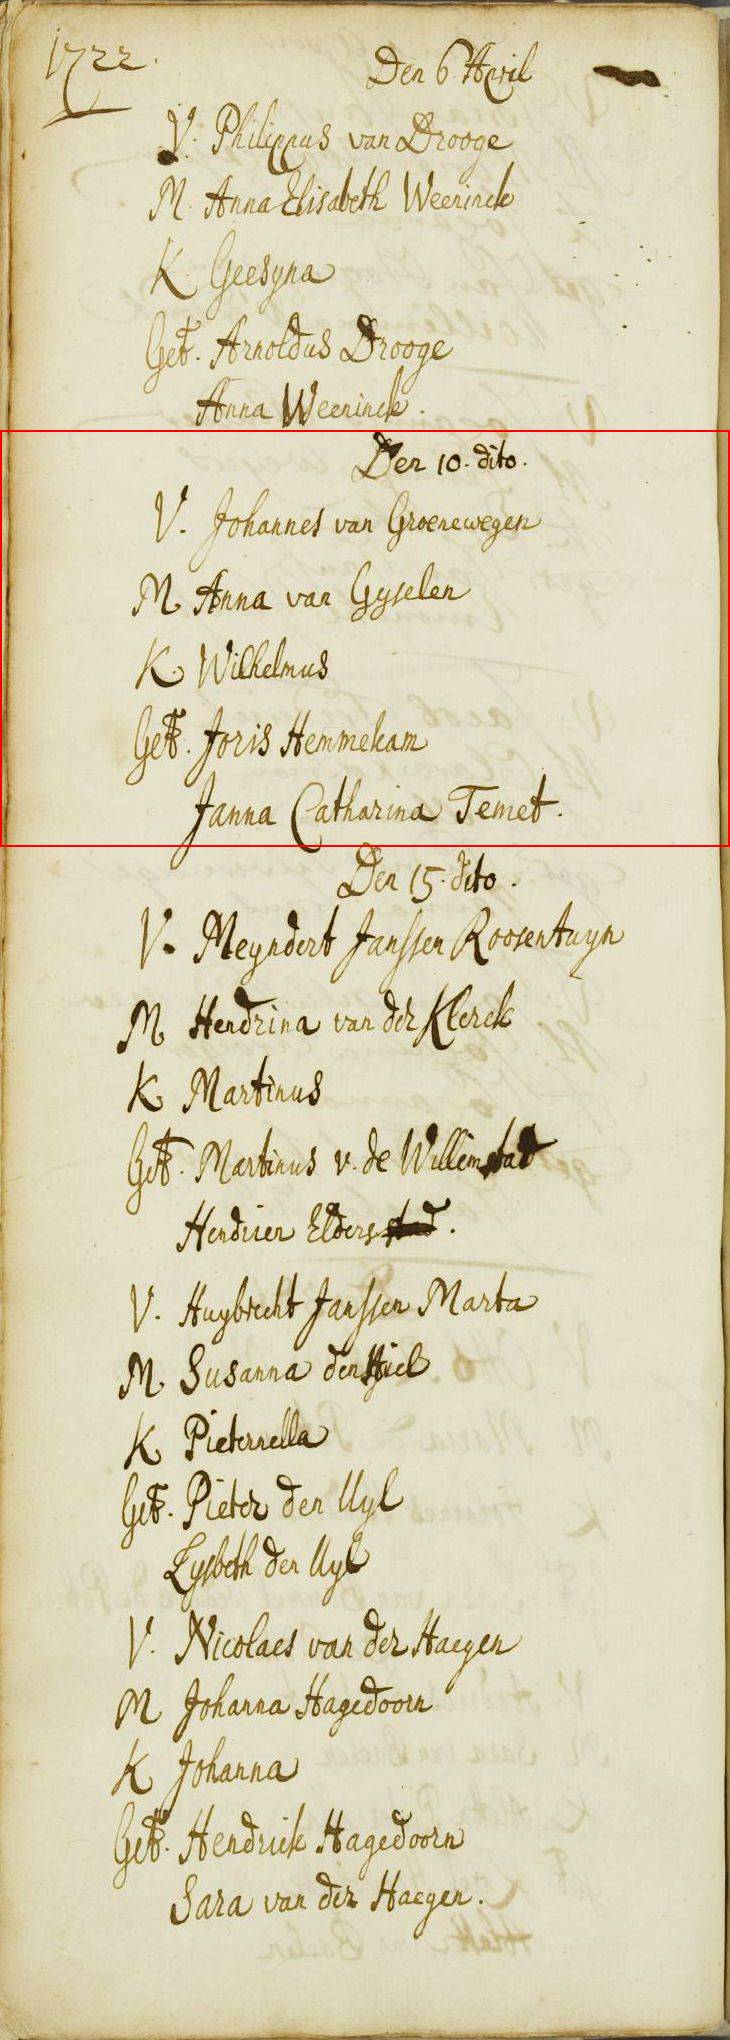 1722.
Den 6 April
V. Philippus van Drooge
M. Anna Elisabeth Weeninck
K. Geesyna
Get. Arnoldus Drooge
Anna Weeninck.
Den 10. dito.
V. Johannes van Groenewegen
M. Anna van Gyselen
K. Wilhelmus
Get. Joris Hemmekam
Janna Catharina Temet.
Den 15. dito.
V. Meyndert Janssen Roosentuyn
M. Hendrina van der Klerck
K. Martinus
Get. Martinus v. de Willemstad
Elders
V. Huybrecht Janssen Marta
M. Susanna den
K. Pieternella
Get. Pieter den Uyl
Lysbeth den Uyl
V. Nicolaes van der Haegen
M. Johanna Hagedoorn
K Johanna
Get. Hendrick Hagedoorn
Sara van der Haegen.